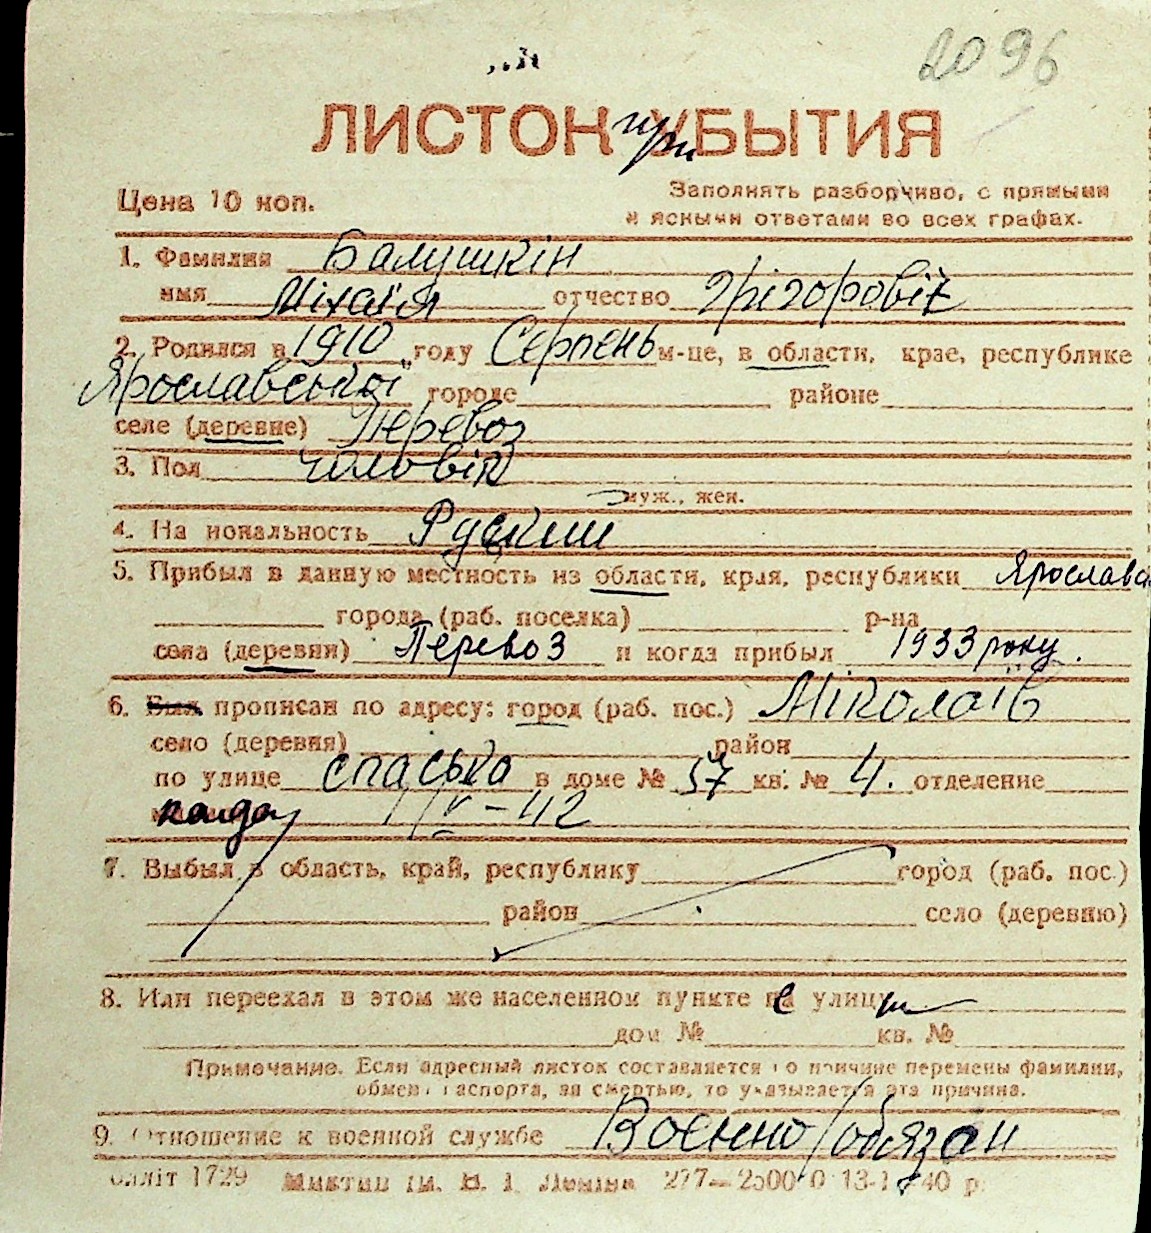 2096
ЛИСТОК при УБЫТИЯ
Цена 10 коп.
Заполнять разборчиво, с прямыми
и ясными ответами во всех графах.
1. Фамилия Балушкін
имя Міхаія отчество Грігоровіч
2. Родился в 1910 году Серпень м-це, в области, крае, республике
Ярославської городе районе
селе (деревне) Перевоз
3. Пол чоловік
муж., жен.
4. Национальность Руский
5. Прибыл в данную местность из области, края, республики Ярославс
города (раб. поселка) р-на
села (деревни) Перевоз и когда прибыл 1933 року.
6. Был прописан по адресу: город (раб. пос.) Міколаїв
село (деревня) район
по улице спаська в доме № 37 кв. № 4. отделение
IV-42
7. Выбыл в область, край, республику город (раб. пос.)
район село (деревню)
8. Или переехал в этом же населенном пункте на улицу
дом № кв. №
Примечание. Если адресный листок составляется по причине перемены фамилии,
обмена паспорта, за смертью, то указывается эта причина.
9. Отношение к военной службе Воєнно/обязан
1729 ім. В. І. Леніна 277—25000 13-1 40 р.